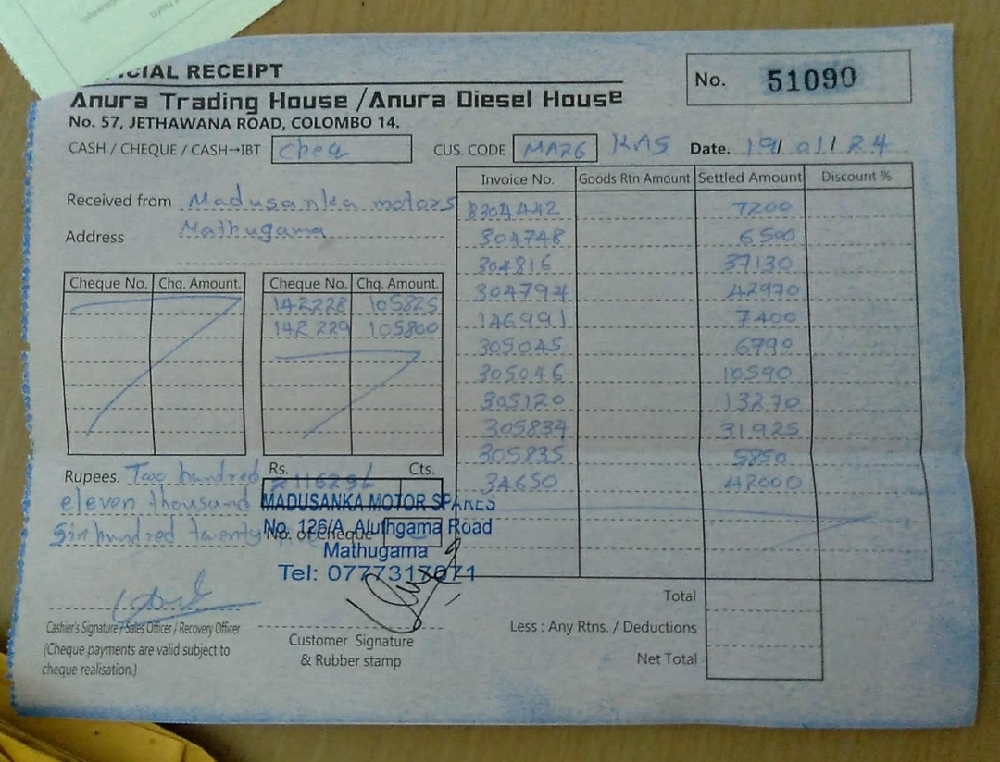 CIAL RECEIPT
No. 51090
Anura Trading House /Anura Diesel House
No. 57, JETHAWANA ROAD, COLOMBO 14.
CASH / CHEQUE / CASH→IBT Cheq CUS. CODE MA26 KAS Date. 19/ 01/ 24
Invoice No. Goods Rtn Amount Settled Amount Discount %
Received from Madusanka motors
Address Mathugama
8304442 7200
304748 6500
304816 37130
304794 42970
146991 7400
305045 6790
305046 10590
305120 13270
305834 31925
305835 5850
34650 42000
Cheque No. Chq. Amount. Cheque No. Chq. Amount.
142228 105825
142229 105800
Rupees. Two hundred Rs. Cts.
eleven thousand
Sixhundred twenty
No. of Cheque
MADUSANKA MOTOR SPARES
No. 126/A, Aluthgama Road
Mathugama
Tel: 0777317671
Total
Less : Any Rtns. / Deductions
Net Total
Cashier's Signature / Sales Officer / Recovery Officer
(Cheque payments are valid subject to
cheque realisation.)
Customer Signature
& Rubber stamp